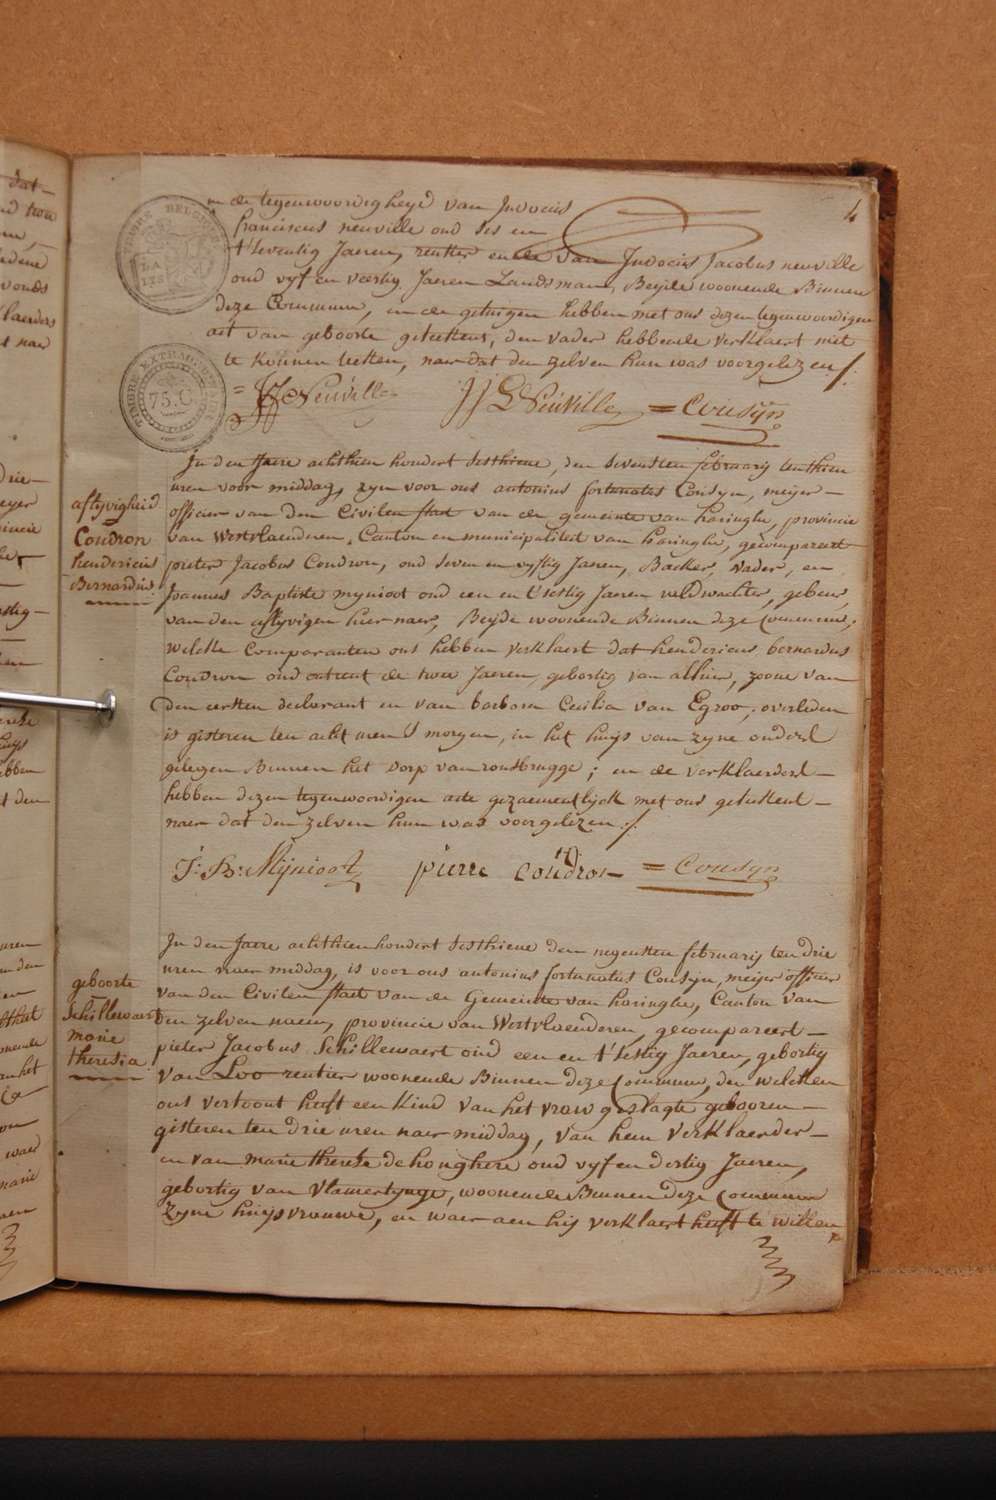 4
in de tegenwoordigheyd van Judocus
franciscus neuville oud ses en
t'seventig Jaeren, rentier ende van Judocus Jacobus neuville
oud vyf en veertig Jaeren Landsman, Beyde woonende Binnen
deze Commune, en de getuigen hebben met ons dezen tegenwoordigen
act van geboorte geteekent, den vader hebbende verklaert niet
te konnen teeken, naer dat den zelven hun was voorgelezen /.
= JF Neuville JJ Neuville = Cousyn
TIMBRE EXTRAORD
75.C
In den Jaere achthien hondert sesthiene, den seventien februarij ten thien
uren voor middag, zyn voor ons antonius fortunatus Cousyn, meijer
officier van den Civilen staet van de gemeinte van haringhe, provincie
van Westvlaenderen, Canton en municipaliteit van haringhe, gecompareert
pieter Jacobus Coudron, oud seven en vyftig Jaeren, Backer, vader, en
Joannes Baptiste mynioot oud een en t'sestig Jaeren veldwachter, gebeur
van den aflyvigen hier naer, Beyde woonende Binnen deze Commune,
welcke Comparanten ons hebben verklaert dat hendericus bernardus
Coudron oud ontrent de twee Jaeren, gebortig van alhier, zoone van
den eersten declarant en van barbara Cecilia van Egroo, overleden
is gisteren ten acht uren 's morgen, in het huys van zyne ouders
gelegen Binnen het dorp van rousbrugge; en de verklaerders
hebben dezen tegenwoordigen acte gezaementlyck met ons geteekent
naer dat den zelven hun was voorgelezen /.
aflyvigheid
Coudron
hendericus
Bernardus
J: B: Mijnioot pierre coudron = Cousyn
In den Jaere achthien hondert sesthiene den negensten februarij ten drie
uren naer middag, is voor ons antonius fortunatus Cousyn, meijer officier
van den Civilen staet van de Gemeinte van haringhe, Canton van
den zelven naem, provincie van Westvlaenderen, gecompareert
pieter Jacobus Schillewaert oud een en t'sestig Jaeren, gebortig
van Loo rentier woonende Binnen deze Commune, den welcken
ons vertoont heeft een kind van het vrouw geslagte gebooren
gisteren ten drie uren naer middag, van hem verklaerder
en van marie therese de houghere oud vyf en dertig Jaeren,
gebortig van Vlamertynge, woonende Binnen deze Commune
zyne huysvrouwe, en waer aen hij verklaert heeft te willen
geboorte
Schillewaert
marie
theresia